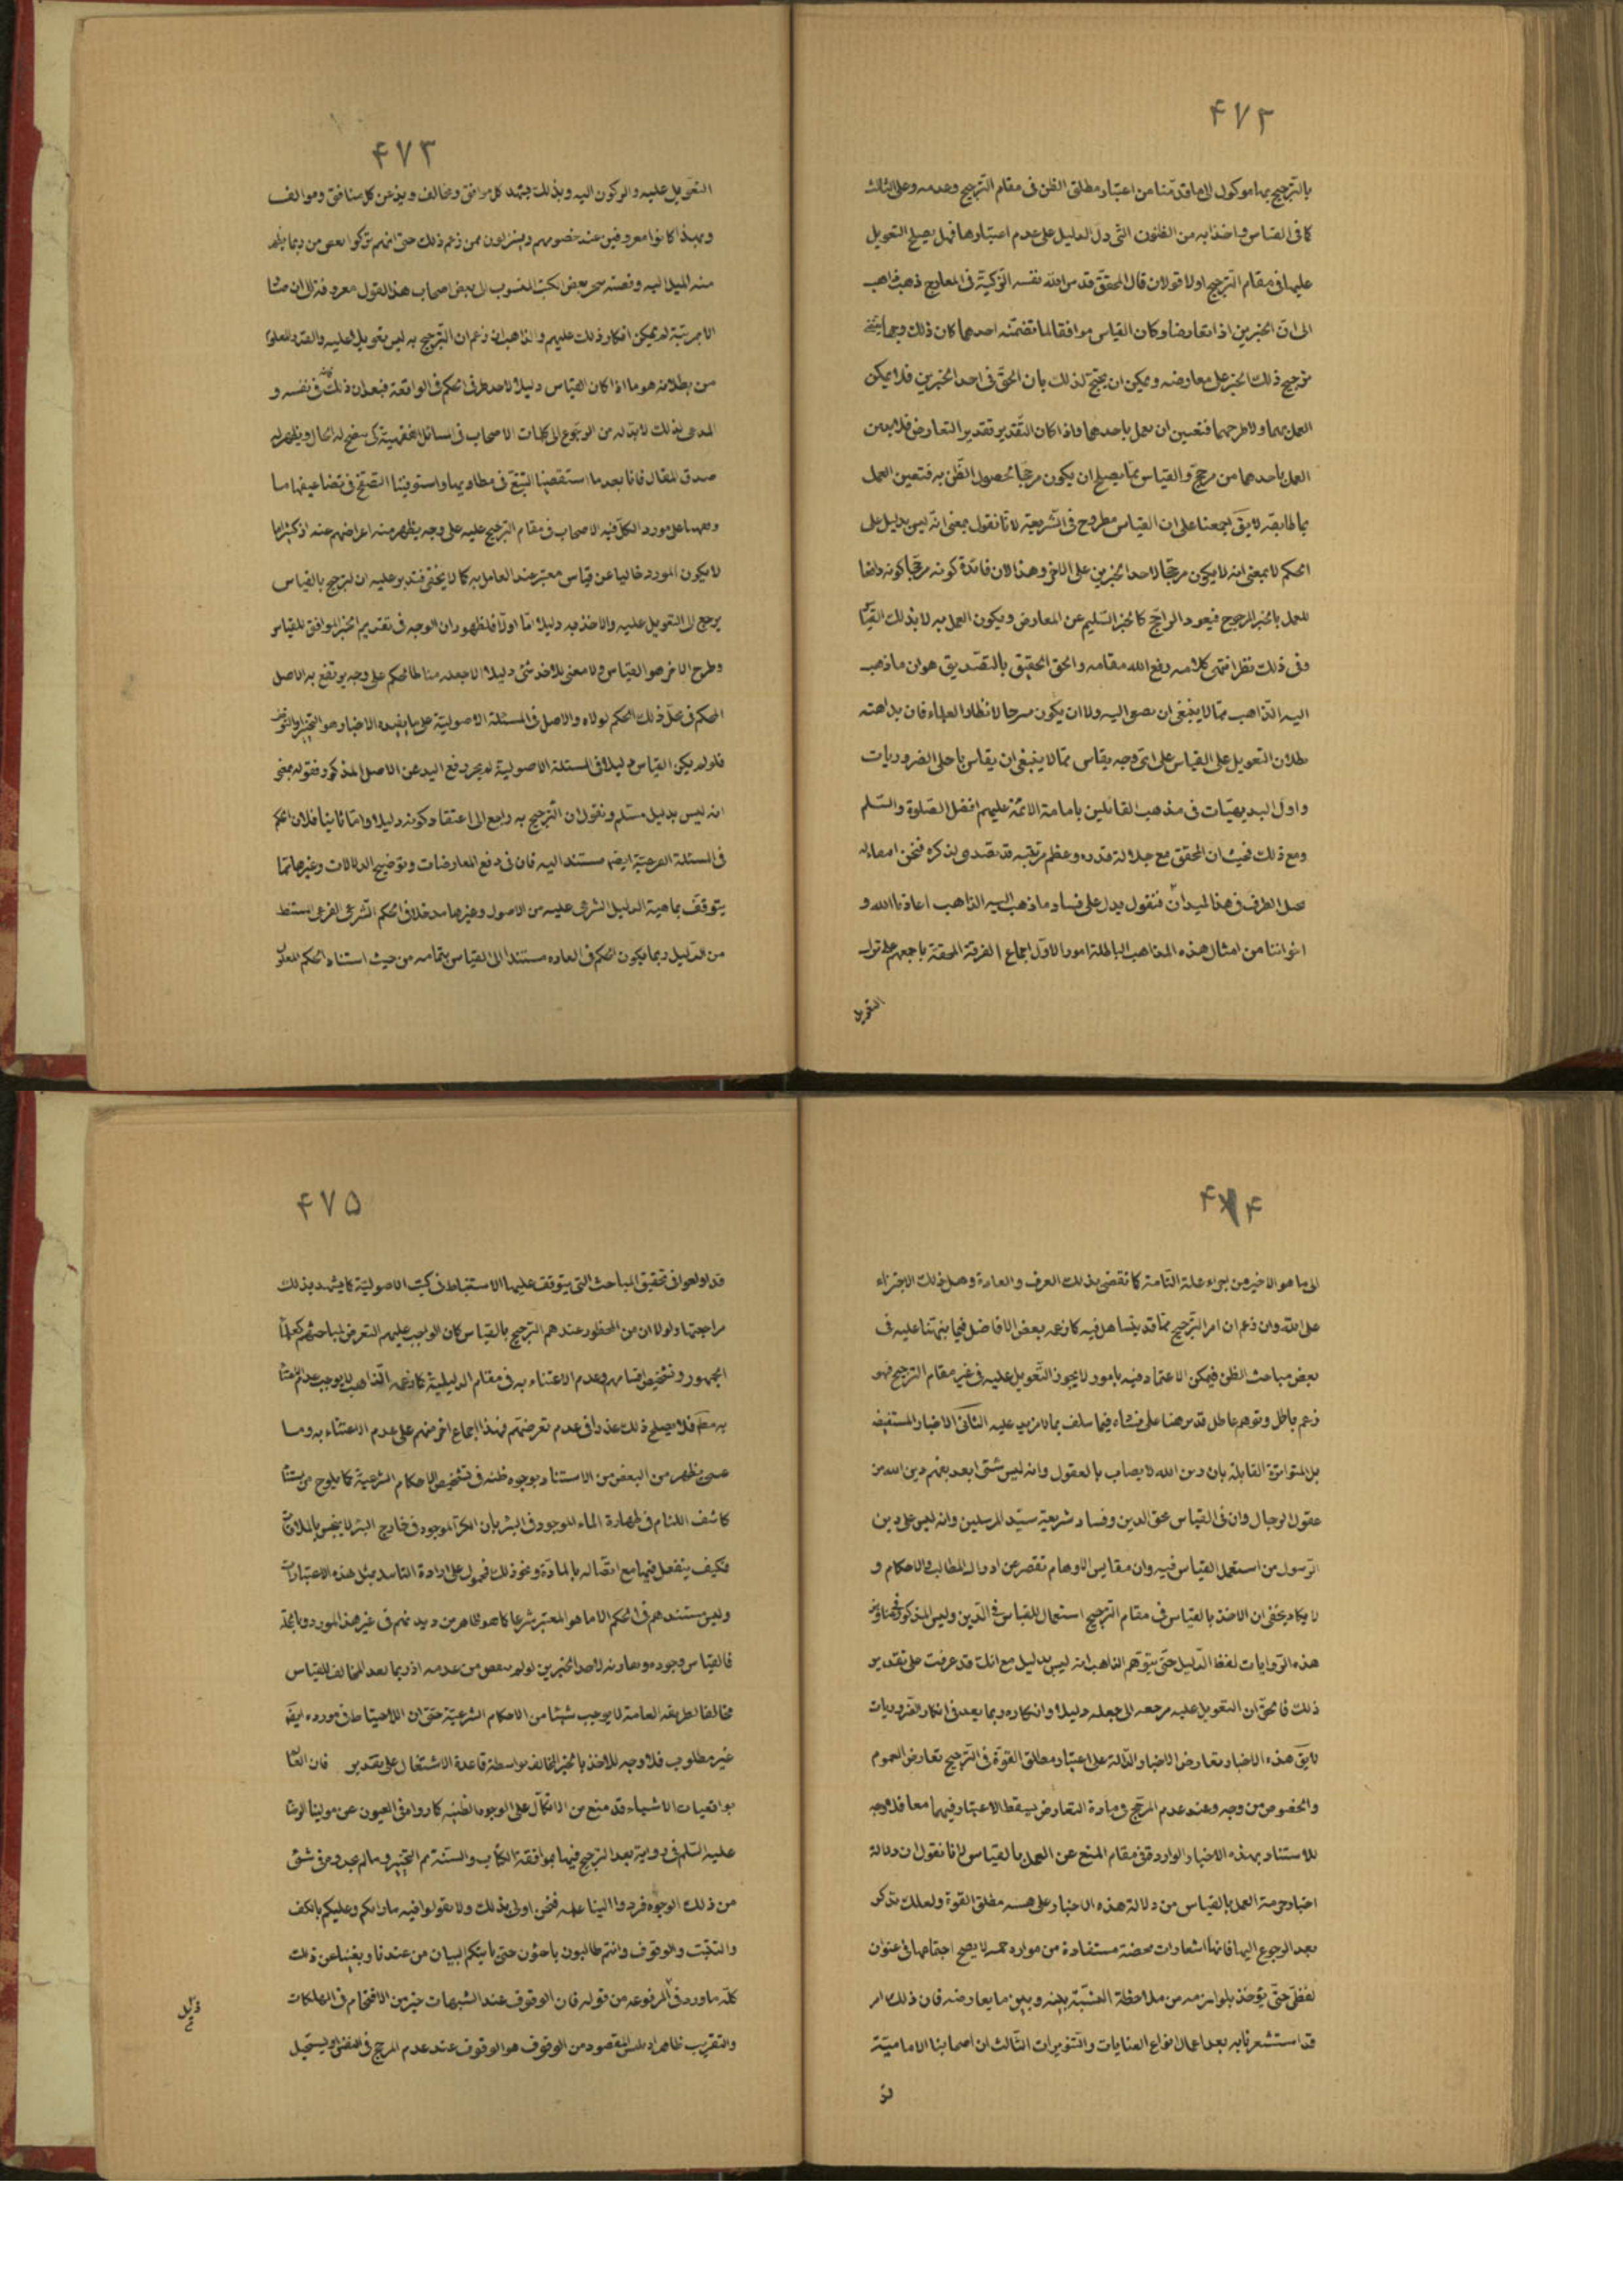 ۴۷۲
بالترجيح بها موكول الى ما قدمنا من اعتبار مطلق الظن فى مقام الترجيح وعدمه وعلى الثالث
كما فى القياس واضرابه من الظنون التى دل الدليل على عدم اعتبارها فهل يصح التعويل
عليها فى مقام الترجيح اولا قولان قال المحقق قدس الله نفسه الزكية فى المعارج ذهب ذاهب
الى ان الخبرين اذا تعارضا وكان القياس موافقا لما تضمنه احدهما كان ذلك وجها يقتضى
ترجيح ذلك الخبر على معارضه ويمكن ان يحتج لذلك بان الحق فى احد الخبرين فلا يمكن
العمل بهما ولا طرحهما فتعين ان يعمل باحدهما واذا كان التقدير تقدير التعارض فلا بد من
العمل باحدهما من مرجح والقياس مما يصلح ان يكون مرجحا لحصول الظن به فتعين العمل
بما طابقه لا يق اجمعنا على ان القياس مطروح فى الشريعة لانا نقول بمعنى انه ليس بدليل على
الحكم لا بمعنى انه لا يكون مرجحا لاحد الخبرين على الاخر وهذا لان فائدة كونه مرجحا كونه دافعا
للعمل بالخبر المرجوح فيعود الراجح كالخبر السليم عن المعارض ويكون العمل به لا بذلك القياس
وفى ذلك نظر انتهى كلامه رفع الله مقامه والحق الحقيق بالتصديق هو ان ما ذهب
اليه الذاهب مما لا ينبغى ان يصغى اليه ولا ان يكون مسرحا لانظار العلماء فان بداهته
بطلان التعويل على القياس على اى وجه يقاس مما لا ينبغى ان يقاس باجلى الضروريات
واول البديهيات فى مذهب القائلين بامامة الائمة عليهم افضل الصلوة والسلم
ومع ذلك فحيث ان المحقق مع جلالة قدره وعظم مرتبته قد تصدى لذكره فنحن
الطرف فى هذا الميدان فنقول يدل على فساد ما ذهب اليه الذاهب اعاذنا الله و
اخواننا من امثال هذه المذاهب الباطلة امور الاول اجماع الفرقة المحقة باجمعهم على ترك
التعويل
۴۷۳
التعويل عليه والركون اليه وبذلك يشهد كل موافق ومخالف ويذعن كل منافق وموالف
وبهذا كانوا معروفين عند خصومهم ممن زعم ذلك حتى انهم تركوا بعض من ربما يظهر
منه الميل اليه وقصته بعض الكتب المنسوب الى بعض اصحاب هذا القول معروفة الى ان
الا مرتبة لم يمكن انكار ذلك عليهم والذاهب انما زعم ان الترجيح به ليس تعويلا عليه والقدر المعلوم
من بطلانه هو ما اذا كان القياس دليلا لا مطلقا فى الحكم فى الواقعة فبعد ان ذلك فى نفسه و
المدعى لذلك لابد له من الرجوع الى كلمات الاصحاب فى المسائل الفقهية كى يتضح له الحال ويظهر له
صدق المقال فانا بعد ما استقصينا التتبع فى مطاويها واستوفينا التصفح فى تضاعيفها ما
وجهنا على مورد اتكل فيه الاصحاب فى مقام الترجيح عليه على وجه يظهر منه اعراضهم عنه اذ كثيرا ما
لا يكون المورد خاليا عن قياس معتبر عند العامل به كما لا يخفى فتدبر وعليه ان الترجيح بالقياس
يرجع الى التعويل عليه والاخذ به دليلا اما اولا فلظهور ان الوجه فى تقديم الخبر الموافق للقياس
وطرح الاخر هو القياس ولا معنى للاخذ شئ دليلا الا جعله مناطا للحكم على وجه يرتفع به الاصل
الحكم فى محل ذلك الحكم لولاه والاصل فى المسئلة الاصولية على ما يفيده الاخبار هو التخيير او التوقف
فلو لم يكن القياس دليلا فى المسئلة الاصولية لم يجز رفع اليد عن الاصل المذكور فقوله بمعنى
انه ليس بدليل مسلم ونقول ان الترجيح به راجع الى اعتقاد كونه دليلا واما ثانيا فلان الحكم
فى المسئلة الفرعية ايضا مستند اليه فان فى دفع المعارضات وتوضيح الدلالات وغيرها مما
يتوقف بماهية الدليل الشرعى عليه من الاصول وغيرها مدخلا فى الحكم الشرعى الفرعى المستنبط
من الدليل وربما يكون الحكم فى العاده مستندا الى القياس بتمامه من حيث استناد الحكم المعلول
۴۷۴
الى ما هو الاخير من اجزاء علة التامة كما تقضى بذلك العرف والعادة وهل ذلك الا جتراء
على الله وان زعم ان امر الترجيح مما قد يتساهل فيه كما زعمه بعض الافاضل فيما نبهنا عليه فى
بعض مباحث الظن فيمكن الاعتماد فيه بامور لا يجوز التعويل عليه فى غير مقام الترجيح فهو
زعم باطل وتوهم عاطل قد برهنا على فساده فيما سلف بما لا مزيد عليه الثانى الاخبار المستفيضة
بل المتواترة القابلة بان دين الله لا يصاب بالعقول وانه ليس شئ ابعد بينهم دين الله من
عقول الرجال وان فى القياس محق الدين وفساد شريعة سيد المرسلين وانه ليس على دين
الرسول من استعمل القياس فيه وان مقاييس الاوهام تقصر عن ادراك المطالب والاحكام و
لا يكاد يخفى ان الاخذ بالقياس فى مقام الترجيح استعمال للقياس فى الدين وليس المذكور فى عناوين
هذه الروايات لفظ الدليل حتى يتوهم الذاهب انه ليس بدليل مع انك قد عرفت على تقدير
ذلك فالحق ان التعويل عليه مرجعه الى جعله دليلا وانكاره ربما يعد فى انكار الضروريات
لا يق هذه الاخبار تعارض الاخبار الدالة على اعتبار مطلق القوة فى الترجيح تعارض العموم
والخصوص من وجه وعند عدم المرجح فى مادة التعارض يسقط الاعتبار فيهما معا فلا وجه
للاستناد بهذه الاخبار الواردة فى مقام المنع عن العمل بالقياس لانا نقول ان دلالة
اخبار حرمة العمل بالقياس من دلالة هذه الاخبار على مطلق القوة ولعلك تذكر
بعد الرجوع اليها فانها اشعارات محضة مستفادة من موارد لا يصح اجتماعها فى عنوان
لفظى حتى يؤخذ بلوازمه من ملاحظة النسبة بينه وبين ما يعارضه فان ذلك امر
قد استشعرنا به بعد اعمال انواع العنايات والتنويرات الثالث ان اصحابنا الامامية
۴۷۵
قد اولعوا فى تحقيق المباحث التى يتوقف عليها الاستنباط فى كتب الاصولية كما يشهد بذلك
مراجعتها ولولا ان من المحظور عندهم الترجيح بالقياس كان الواجب عليهم التعرض لمباحثهم كما
الجمهور وتشخيص اقسامهم وعدم الاعتناء به فى مقام الدليلية كما زعمه الذاهب لا يوجب عدم الاعتناء
به مط فلا يصلح ذلك عذرا فى عدم تعرضهم فهذا اجماع اخر منهم على عدم الاعتناء به وما
عسى يظهر من البعض من الاستناد بوجوه ظنيه فى تشخيص الاحكام الشرعية كما يلوح من
كاشف اللثام فى طهارة الماء الموجود فى البئر بان الكر الموجود فى خارج البئر لا ينجس بالملاقات
فكيف ينفعل فيها مع اتصاله بالمادة ونحو ذلك فمحمول على ارادة التاييد بمثل هذه الاعتبارات
وليس مستندهم فى الحكم الا ما هو المعتبر شرعا كما هو ظاهر من ديدنهم فى غير هذا المورد وبالجملة
فالقياس وجوده معارضه لاحد الخبرين لو لم ينقص من عدمه اذ ربما يعد المخالف للقياس
مخالفا لطريقه العامة لا يوجب شيئا من الاحكام الشرعية حتى ان الاحتياط فى مورده ايضا
غير مطلوب فلا وجه للاخذ بالخبر المخالف بواسطة قاعدة الاشتغال على تقدير فان
بواقعيات الاشياء قد منع من الاتكال على الوجوه الظنيه كما رواه فى العيون عن مولينا الرضا
عليه السلم فى رواية بعد الترجيح فيها بموافقة الكتاب والسنة ثم التخيير وما لم تجدوه فى شئ
من ذلك الوجوه فردوا الينا علمه فنحن اولى بذلك ولا تقولوا فيه بارائكم وعليكم بالكف
والتثبت والوقوف وانتم طالبون باحثون حتى ياتيكم البيان من عندنا ويغنينا عن ذلك
كله ما ورد فى المرفوعه من قوله فان الوقوف عند الشبهات خير من الاقتحام فى الهلكات
والتقريب ظاهر اذ ليس المقصود من الوقوف هو الوقوف عند عدم المرجح فى